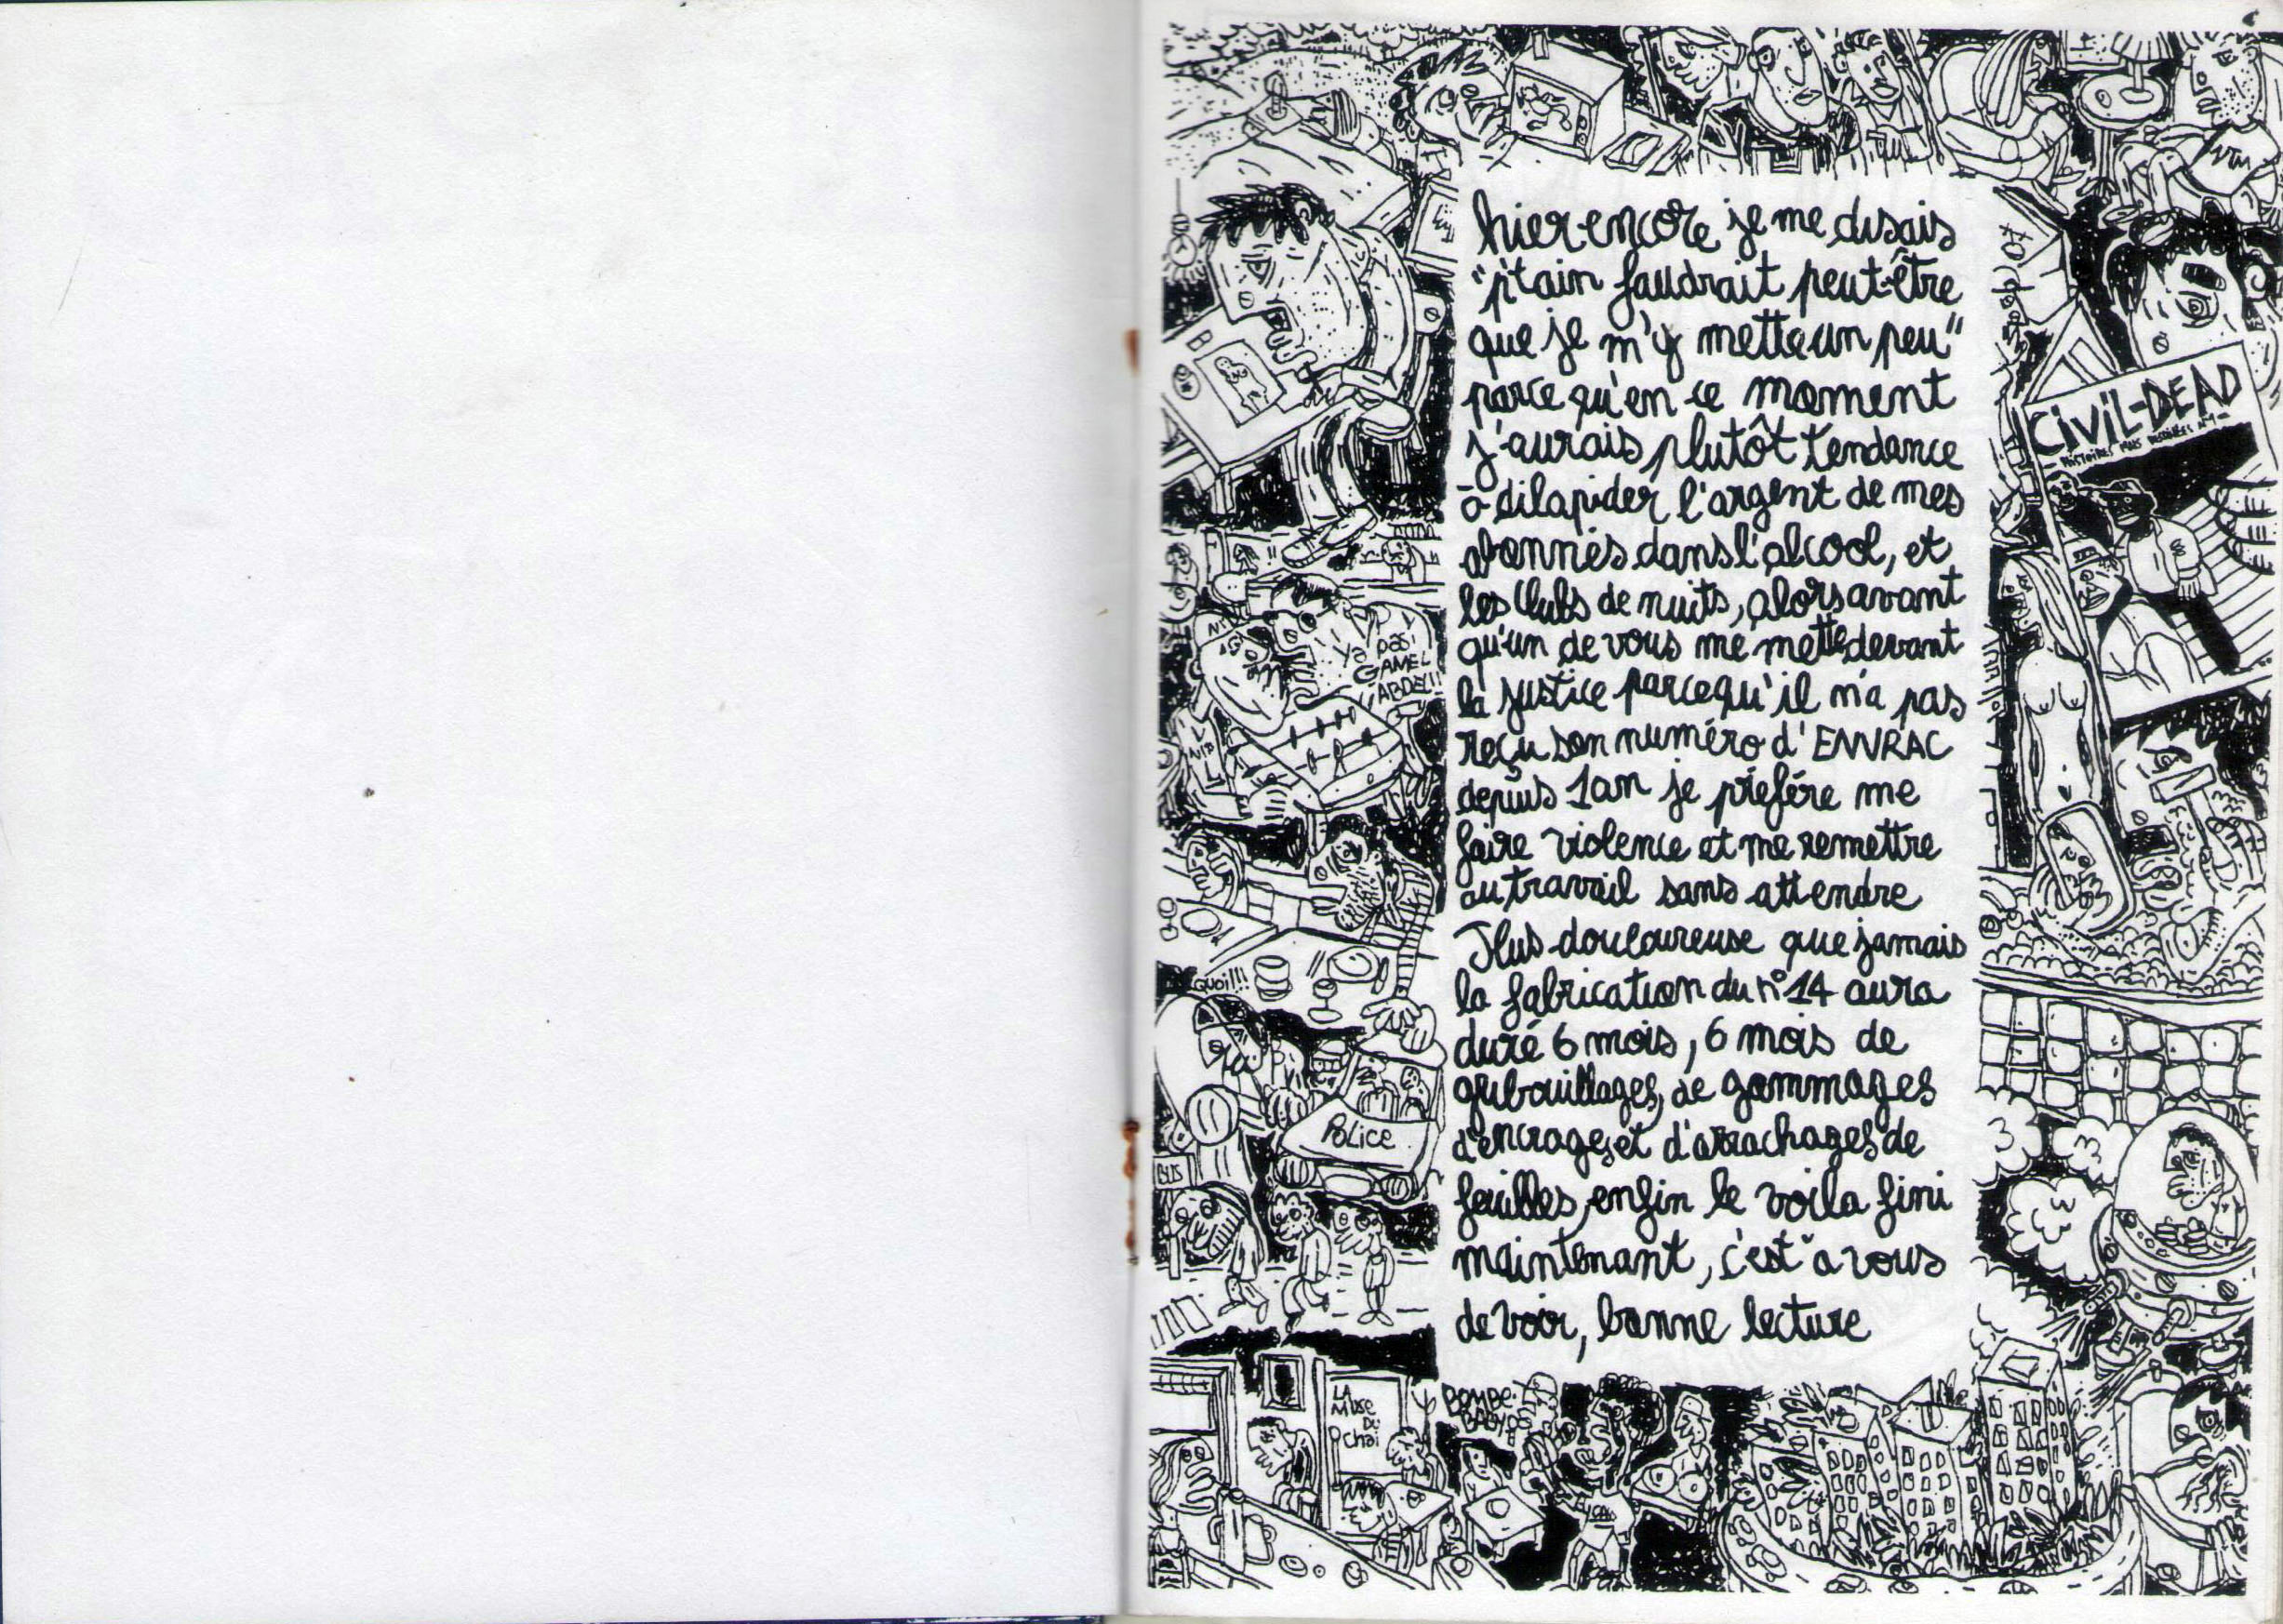 hier encore je me disais
"p'tain faudrait peut-être
que je m'y mette un peu"
parce qu'en ce moment
j'aurais plutôt tendance
à dilapider l'argent de mes
abonnés dans l'alcool, et
les clubs de nuits, alors avant
qu'un de vous me mette devant
la justice parcequ'il n'a pas
reçu son numéro d'ENVRAC
depuis 1 an je préfére me
faire violence et me remettre
au travail sans attendre
Plus douloureuse que jamais
la fabrication du n°14 aura
duré 6 mois, 6 mois de
gribouillages, de gommages
d'encrages, et d'arrachages de
feuilles, enfin le voila fini
maintenant, c'est à vous
de voir, bonne lecture
CIVIL-DEAD
07
Ya pas
GAMEL
ABDEL!!
QUOI!!!
POLICE
BUS
LA
MUSE
DU
chai
BOMBE
BABY